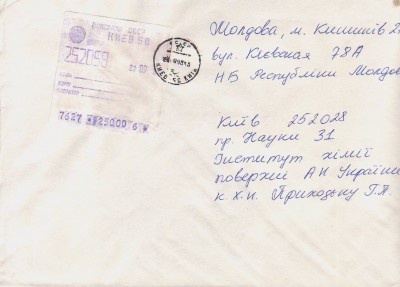 КИЕВ 56
252056
7627 25000 6
КИЕВ
Молдова, м. Кишинів
вул. Київська 78А
НБ Республіки Молдов
Київ 252028
пр. Науки 31
Інститут хімії
поверхні АН України
к.х.н. Приходьку Г.П.